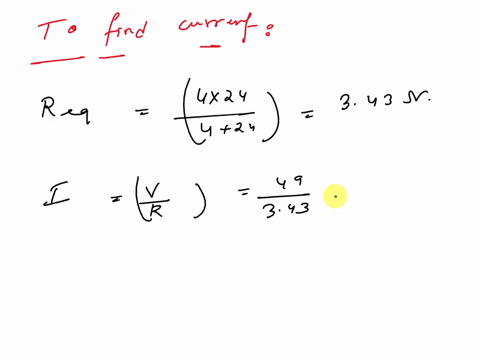 To find current:
Req = (4x24 / (4+24)) = 3.43 Ω.
I = (V/R) = 49/3.43